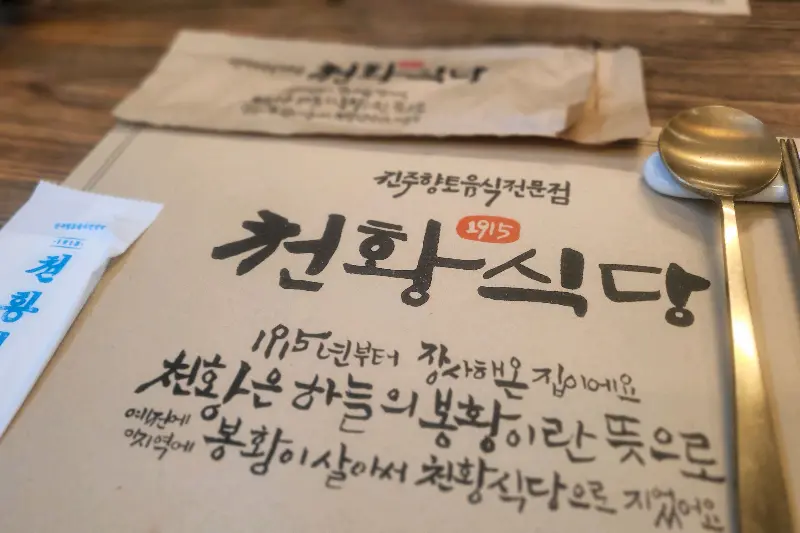 천황식당
진주향토음식전문점
천황 1915 식당
1915년부터 장사해온 집이에요
천황은 하늘의 봉황이란 뜻으로
예전에 이지역에 봉황이 살아서 천황식당으로 지었어요
1915
천황